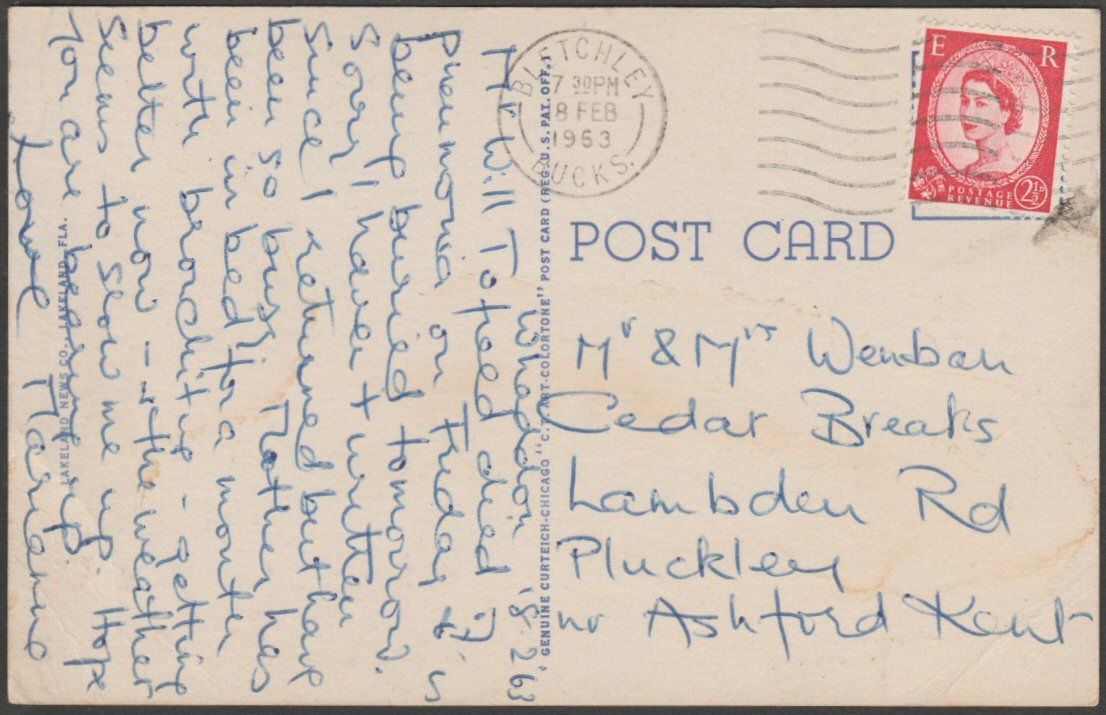 Whaddon 18.2.63
Mr Will Tofeed died of
pneumonia on Friday & is
being buried tomorrow.
Sorry I haven't written
since I returned but have
been so busy. Mother has
been in bed for a month
with bronchitis - getting
better now - the weather
seems to slow me up. Hope
you are keeping up.
Love Marianne
LAKELAND NEWS CO., LAKELAND, FLA.
GENUINE CURTEICH-CHICAGO "C.T. ART-COLORTONE" POST CARD (REG. U.S. PAT. OFF.)
BLETCHLEY
7 30PM
18 FEB
1963
BUCKS.
E R
POSTAGE
REVENUE
2½D
POST CARD
Mr & Mrs Wenban
Cedar Breaks
Lambden Rd
Pluckley
nr Ashford Kent